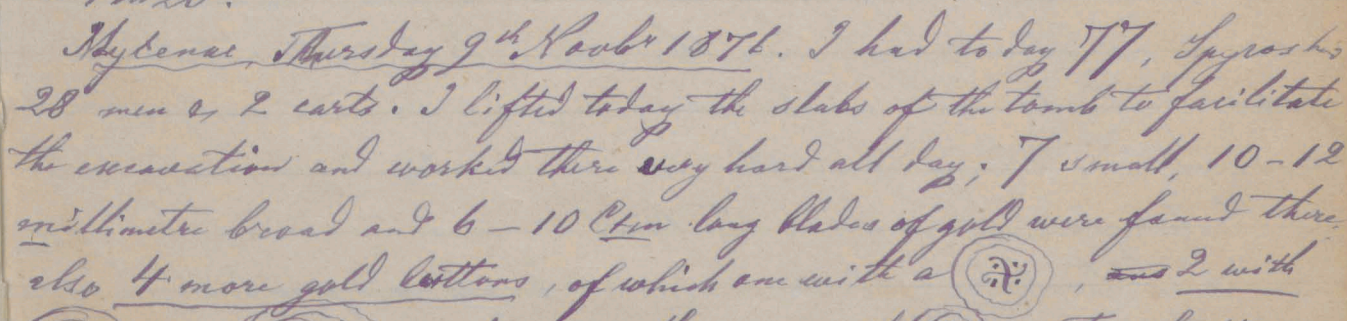 Mykenae, Thursday 9th Novbr 1876. I had to day 77, Spyros has
28 men & 2 carts. I lifted today the slabs of the tomb to facilitate
the excavation and worked there very hard all day; 7 small, 10-12
millimetre broad and 6-10 Ctm long blades of gold were found there,
also 4 more gold buttons, of which one with a , and 2 with